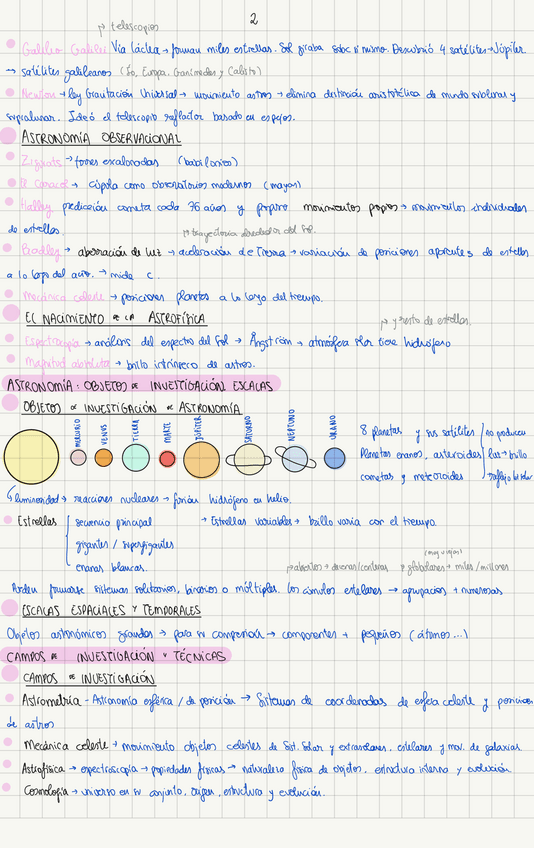 2
→ telescopios
Galileo Galilei Vía láctea → forman miles estrellas. Sol giraba sobre sí mismo. Descubrió 4 satélites → Júpiter
→ satélites galileanos (Io, Europa, Ganímedes y Calisto)
Newton → ley Gravitación Universal → movimiento astros → elimina distinción aristotélica de mundo sublunar y
supralunar. Ideó el telescopio reflector basado en espejos.
ASTRONOMÍA OBSERVACIONAL
Zigurats → torres escalonadas (babilonios)
El Caracol → cúpola como observatorios modernos (mayas)
Halley predicción cometa cada 76 años y propuso movimientos propios → movimientos individuales
de estrellas.
→ trayectoria alrededor del Sol.
Bradley → aberración de luz → aceleración de Tierra → variación de posiciones aparentes de estrellas
a lo largo del año. → mide c.
Mecánica celeste → posiciones planetas a lo largo del tiempo.
EL NACIMIENTO DE LA ASTROFÍSICA
→ y resto de estrellas.
Espectroscopía → análisis del espectro del Sol → Ångström → atmósfera solar tiene hidrógeno
Magnitud absoluta → brillo intrínseco de astros.
ASTRONOMÍA: OBJETOS DE INVESTIGACIÓN ESCALAS
OBJETOS DE INVESTIGACIÓN DE ASTRONOMÍA
MERCURIO VENUS TIERRA MARTE JÚPITER SATURNO NEPTUNO URANO
8 planetas y sus satélites no producen
Planetas enanos, asteroides luz → brillo
cometas y meteoroides reflejo luz solar
luminosidad → reacciones nucleares → fusión hidrógeno en helio.
Estrellas secuencia principal → Estrellas variables → brillo varía con el tiempo.
gigantes / supergigantes
enanas blancas.
(muy viejas)
→ abiertos → decenas/centenas → globulares → miles/millones
Pueden formarse sistemas solitarios, binarios o múltiples. Los cúmulos estelares → agrupaciones + numerosas
ESCALAS ESPACIALES Y TEMPORALES
Objetos astronómicos grandes → para su comprensión → componentes + pequeños (átomos...)
CAMPOS DE INVESTIGACIÓN Y TÉCNICAS
CAMPOS DE INVESTIGACIÓN
Astrometría - Astronomía esférica / de posición → Sistemas de coordenadas de esfera celeste y posiciones
de astros
Mecánica celeste → movimiento objetos celestes de Sist. Solar y extrasolares, estelares y mov. de galaxias
Astrofísica → espectroscopia → propiedades físicas → naturaleza física de objetos, estructura interna y evolución
Cosmología → universo en su conjunto, origen, estructura y evolución.